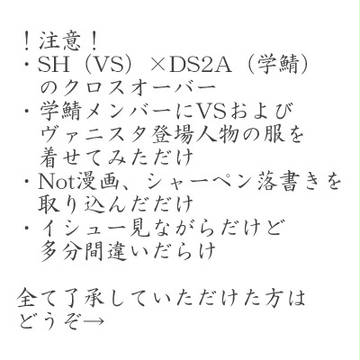 ！注意！
・SH（VS）×DS2A（学鯖）
のクロスオーバー
・学鯖メンバーにVSおよび
ヴァニスタ登場人物の服を
着せてみただけ
・Not漫画、シャーペン落書きを
取り込んだだけ
・イシュー見ながらだけど
多分間違いだらけ
全て了承していただけた方は
どうぞ→